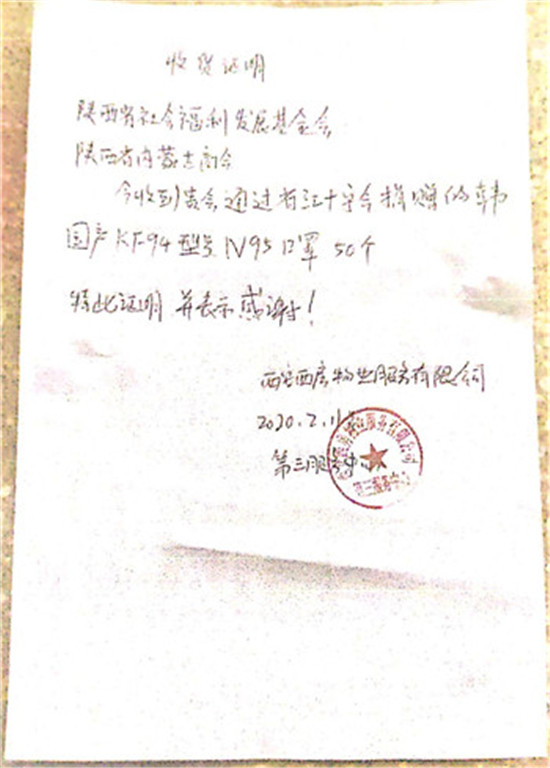 收货证明
陕西省社会福利发展基金会
陕西省内蒙古商会
今收到贵会通过省红十字会捐赠的韩
国产KF94型号N95口罩50个
特此证明并表示感谢!
西安西房物业服务有限公司
2020.2.11
第三服务中心
物业服务有限公司
第三服务中心